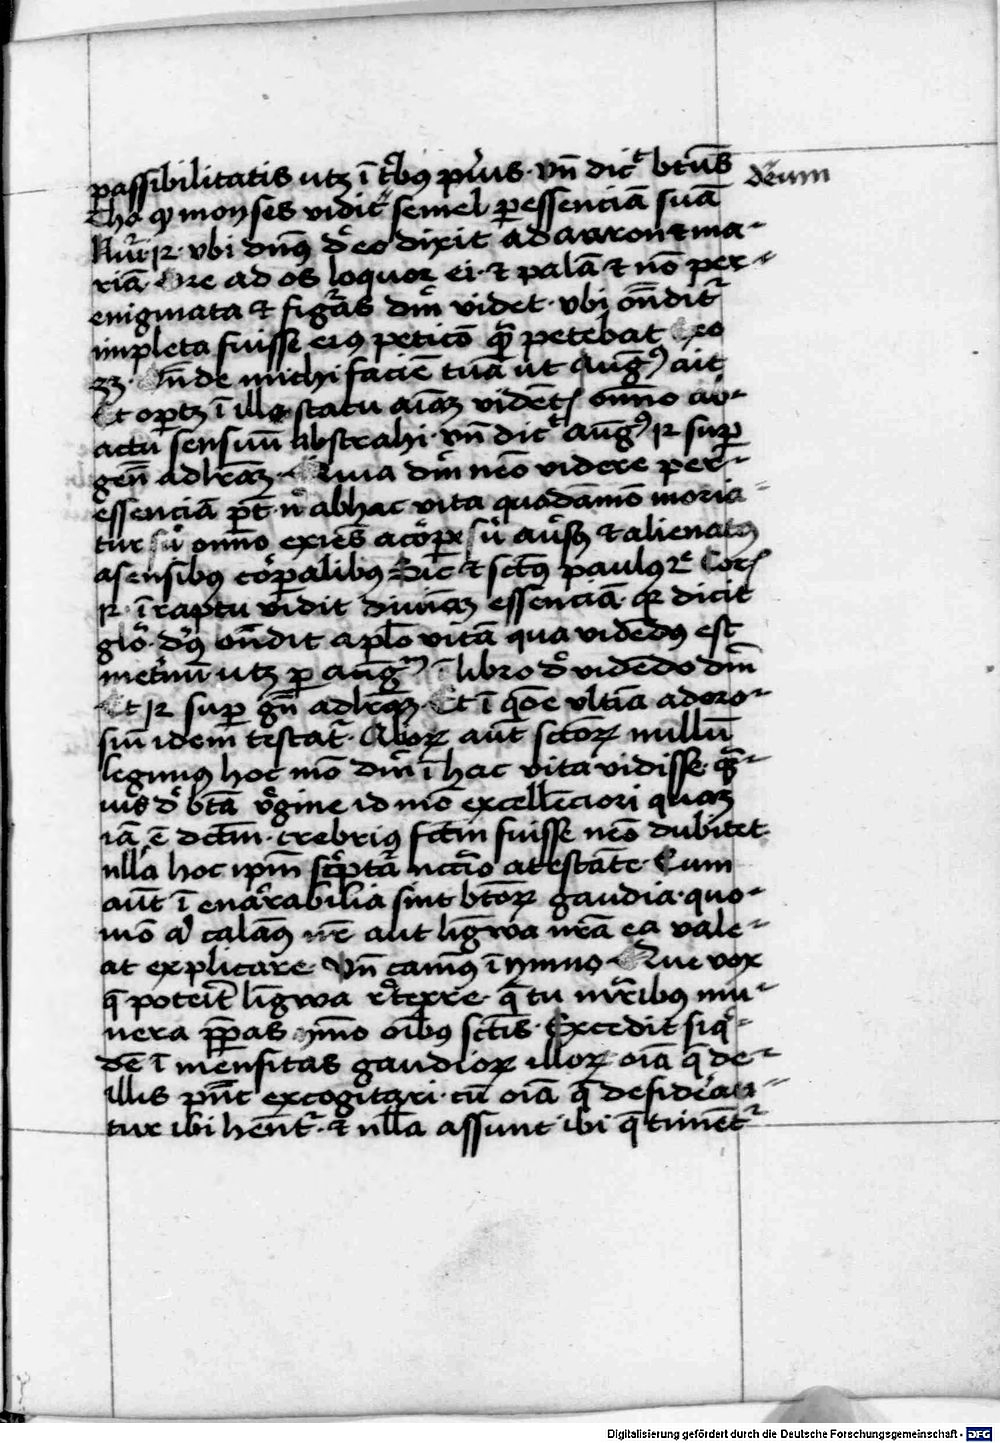 passibilitatis utꝫ ī t̄bꝰ pͥus. vn̄ dicͭ btūs
deum
Tho. ꝙ moyses vidit semel ꝑ essenciā suā
Nūi 12. vbi dn̄s de eo dixit ad aaron ⁊ ma-
riā. Ore ad os loquor ei. ⁊ palā ⁊ nō per-
enigmata ⁊ figͣas dm̄ videt. vbi on̄ditͬ
impleta fuisse eiꝰ peticō qͣ petebat Exo
33. On̄de michi faciē tuā ut Augꝰ ait
Et oportꝫ ī illo statu aīaꝫ vidētꝭ om̄no ab-
actu sensuū abstrahi. vn̄ dicͭ augꝰ 12 suꝑ
gen̄ ad lr̄aꝫ. Quia dm̄ nēo videre per-
essenciā pt̄ nͥ ab hac vita quodāmō moria-
tur siͥ om̄no exiens a corꝑe siͥ auͥsꝰ ⁊ alienatꝰ
a sensibꝰ corꝑalibꝰ Sic ⁊ sctūs paulꝰ 2ͤ Corꝭ
12. ī raptu vidit diuinā essenciā. qr dicit
glō. dn̄s on̄dit aplō vitā qua vidēdꝰ est
inet̄nū utꝫ ꝑ augꝰ ī libro de vidēdo dm̄
Et 12 suꝑ gn̄ ad lr̄aꝫ. Et ī qōe vltīa ad oro-
siū idem testatͬ. Alioꝝ aut̄ sctōꝝ nullū
legimꝰ hoc mō dm̄ ī hac vita vidisse. qͣ-
uis de btā v̓gine id mō excellēciori quaꝫ
iā ē dictm̄. crebriꝰ fctm̄ fuisse nēo dubitet.
nlla hoc ipm̄ scͥptā racīo atestāte. Cum
aut̄ ī enarrabilia sint btōꝝ gaudia. quo-
mō aͥ calamꝰ nr̄e aut līgwa nr̄a ea vale-
at explicare. Vn̄ camꝰ ī ymno. Que vox
q̄ poterit līgwa retexere. q̄ tu mr̄ribꝰ mu-
nera p̄pas ymo oībꝰ sctīs. Excedit siqͥ-
dē ī mēnsitas gaudioꝝ illoꝝ oīa q̄ de-
illis pn̄t excogitari. cū oīa q̄ desideran-
tur ibi hēntͬ. ⁊ nlla assunt ibi q̄ timētͬ
Digitalisierung gefördert durch die Deutsche Forschungsgemeinschaft - DFG